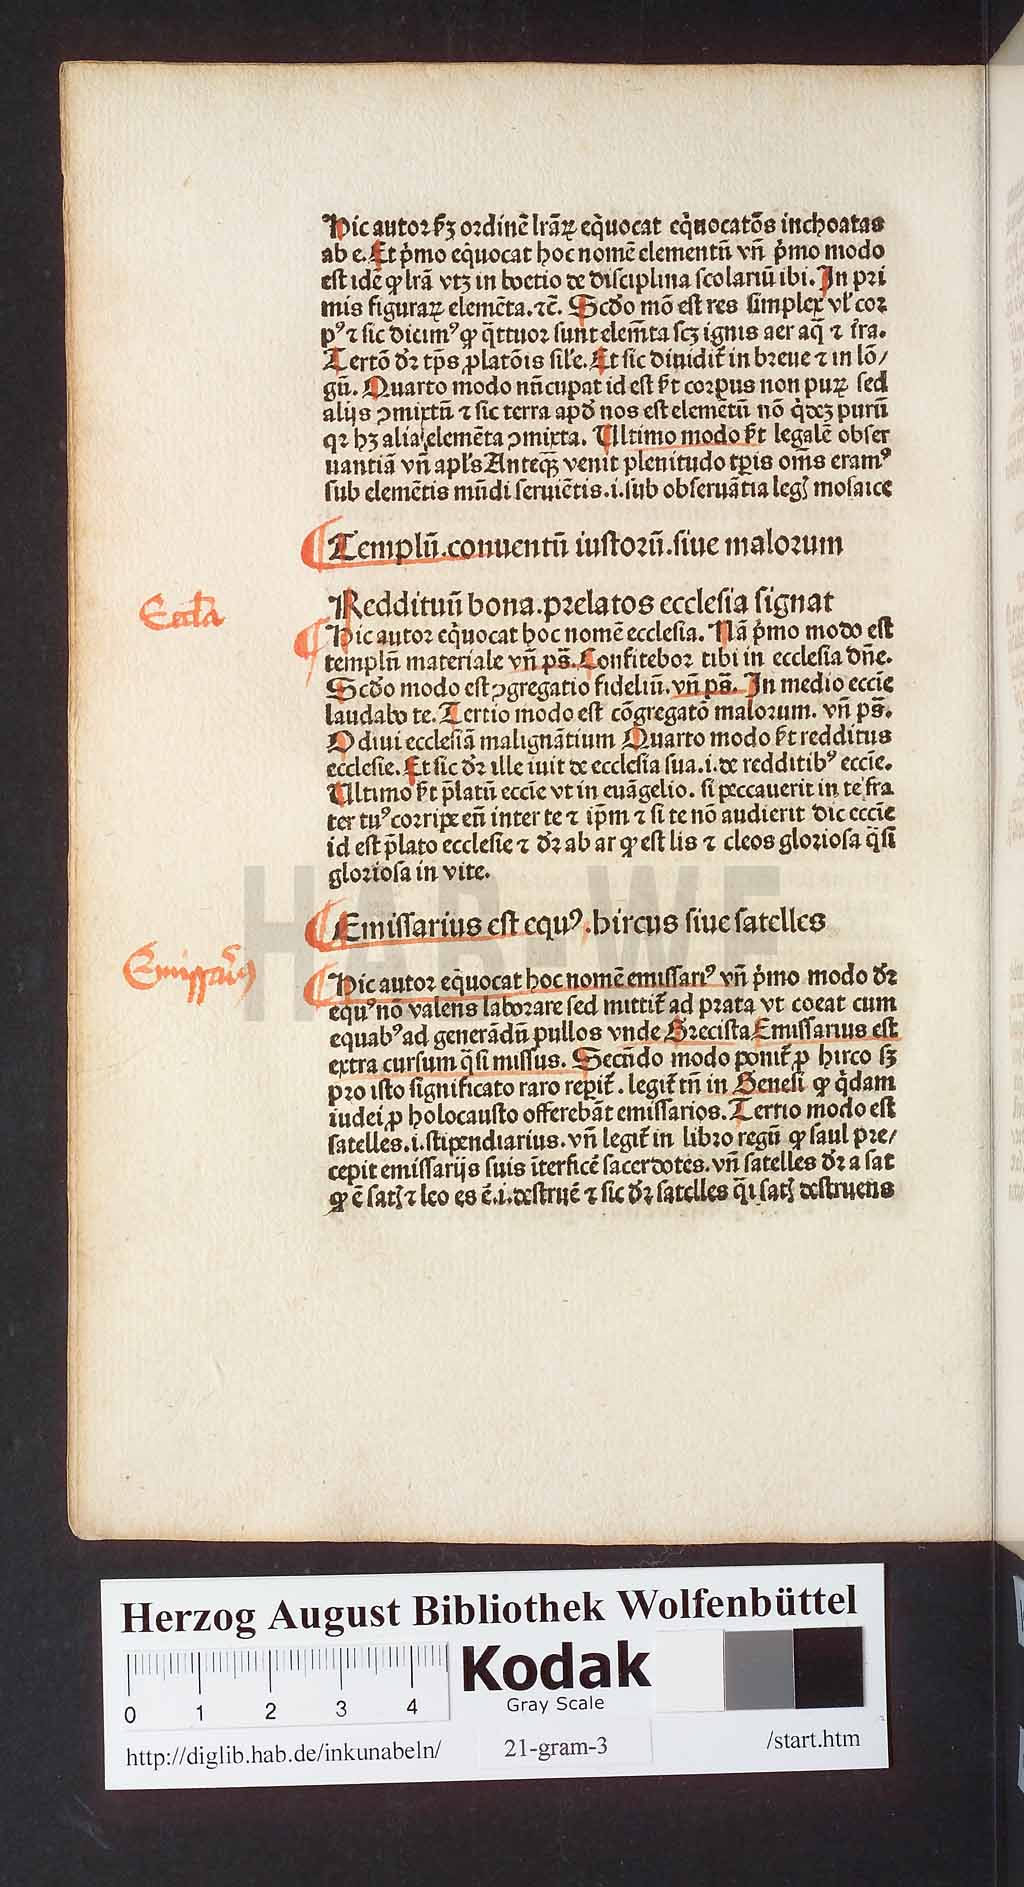 Hic autor ẜꝫ ordinē lr̄aꝝ eq̇uocat eq̇uocatōs inchoatas
ab e. Et pͥmo eq̇uocat hoc nomē elementū vn̄ pͥmo modo
est idē ꝙ lr̄a vtꝫ in boetio de disciplina scolariū ibi. In pri
mis figuraꝝ elemēta. ⁊c̄. Scd̄o mō est res simplex vl̓ cor
pꝰ ⁊ sic dicimꝰ ꝙ q̄ttuor sunt elem̄ta scꝫ ignis aer aq̄ ⁊ t̓ra.
Tertō dr̄ tp̄s ꝓlatōis sill̓e. Et sic diuidit̄ in breue ⁊ in lō/
gū. Quarto modo nūcupat id est ẜt corpus non puꝝ sed
alijs ꝯmixtū ⁊ sic terra apd̓ nos est elemētū nō q̇deꝫ purū
qꝛ hꝫ alia elemēta ꝯmixta. Ultimo modo ẜt legalē obser
uantiā vn̄ apl̓s Anteqꝫ̄ venit plenitudo tꝑis om̄s eramꝰ
sub elemētis mūdi seruiētis .i. sub obseruātia legꝭ mosaice
Templū .conuentū iustorū .siue malorum
Eccl̄a
Reddituū bona .prelatos ecclesia signat
Hic autor eq̇uocat hoc nomē ecclesia. Nā pͥmo modo est
templū materiale vn̄ ps̄. Confitebor tibi in ecclesia dn̄e.
Scd̄o modo est ꝯgregatio fidelium. vn̄ ps̄. In medio ecc̄ie
laudabo te. Tertio modo est cōgregatō malorum. vn̄ ps̄.
Odiui ecclesiā malignātium Quarto modo ẜt redditus
ecclesie. Et sic dr̄ ille iuit de ecclesia sua .i. de redditibꝰ ecc̄ie.
Ultimo ẜt p̄latū ecc̄ie vt in euāgelio. si peccauerit in te fra
ter tuꝰ corripe eū inter te ⁊ ip̄m ⁊ si te nō audierit dic ecc̄ie
id est p̄lato ecclesie ⁊ dr̄ ab ar ꝙ est lis ⁊ cleos gloriosa q̄si
gloriosa in vite.
Emissarius est equꝰ .hircus siue satelles
Emissariꝰ
Hic autor eq̇uocat hoc nomē emissariꝰ vn̄ pͥmo modo dr̄
equꝰ nō valens laborare sed mittit̄ ad prata vt coeat cum
equabꝰ ad generādū pullos vnde Grecista Emissarius est
extra cursum q̄si missus. Secūdo modo ponit̄ ꝓ hirco sꝫ
pro isto significato raro reꝑit̄. legit̄ tn̄ in Genesi ꝙ q̇dam
iudei ꝓ holocausto offerebāt emissarios. Tertio modo est
satelles .i. stipendiarius. vn̄ legit̄ in libro regū ꝙ saul pre/
cepit emissarijs suis īterficē sacerdotes. vn̄ satelles dr̄ a sat
ꝙ ē satꝭ ⁊ leo es ē .i. destruē ⁊ sic dr̄ satelles q̄i satꝭ destruens
HAB-WF
Herzog August Bibliothek Wolfenbüttel
0 1 2 3 4
Kodak
Gray Scale
http://diglib.hab.de/inkunabeln/ 21-gram-3 /start.htm